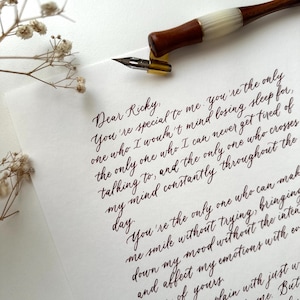 Dear Ricky,
You're special to me. you're the only
one who I would't mind losing sleep for,
the only one who I can never get tired of
talking to, and the only one who crosses
my mind constantly throughout the
day.
You're the only one who can make
me smile without trying, bringing
down my mood without the inten
and affect my emotions with ev
of yours.
explain with just w
me. But